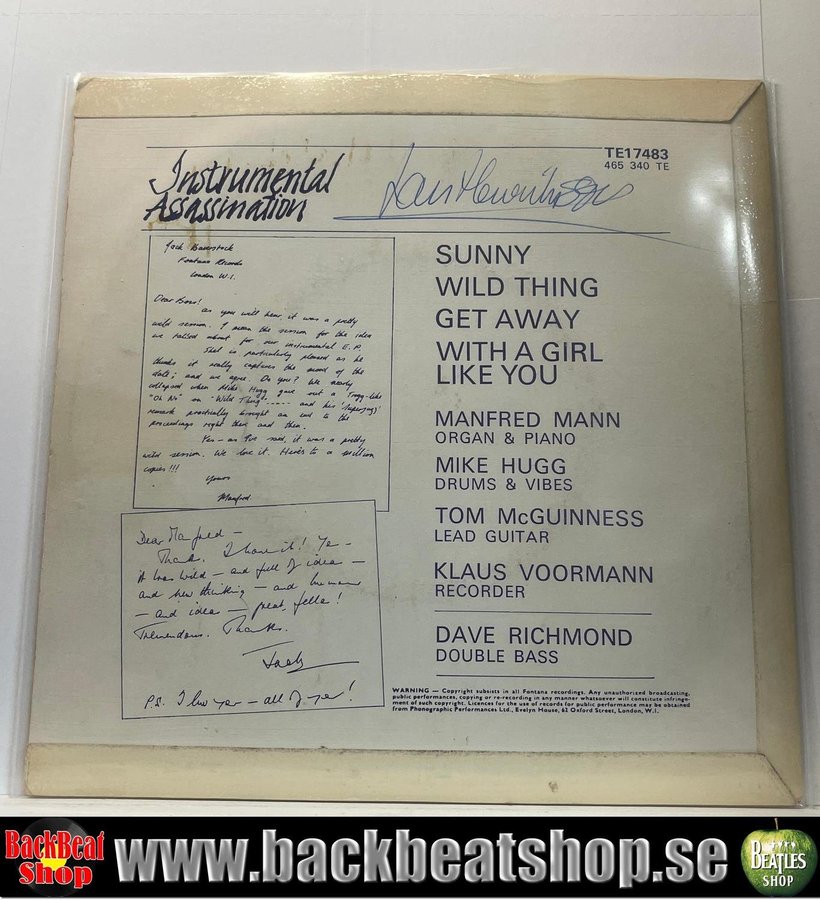 Instrumental
Assassination
TE17483
465 340 TE
Jack Baverstock
Fontana Records
London W.1.
Dear Boss!
As you will hear, it was a pretty
wild session. I mean the session for the idea
we talked about for our instrumental E.P.
that is particularly pleased as he
thinks it really captures the mood of the
date; and we agree. Do you? We nearly
collapsed when Mike Hugg gave out a Trogg-like
"Oh No" on "Wild Thing"...... and his
remark practically brought an end to the
proceedings right then and there.
Yes - as I've said, it was a pretty
wild session. We love it. Here's to a million
copies!!!
Yours
Manfred
Dear Manfred -
Thanks. I have it! Ye -
it was wild - and full of ideas -
and new thinking - and humour
- and ideas - great, fella!
Tremendous. Thanks.
Jack
P.S. I love yer - all of ye!
SUNNY
WILD THING
GET AWAY
WITH A GIRL
LIKE YOU
MANFRED MANN
ORGAN & PIANO
MIKE HUGG
DRUMS & VIBES
TOM McGUINNESS
LEAD GUITAR
KLAUS VOORMANN
RECORDER
DAVE RICHMOND
DOUBLE BASS
WARNING — Copyright subsists in all Fontana recordings. Any unauthorized broadcasting,
public performances, copying or re-recording in any manner whatsoever will constitute infringe-
ment of such copyright. Licences for the use of records for public performance may be obtained
from Phonographic Performances Ltd., Evelyn House, 62 Oxford Street, London, W.1.
BackBeat
Shop
www.backbeatshop.se
BEATLES
SHOP